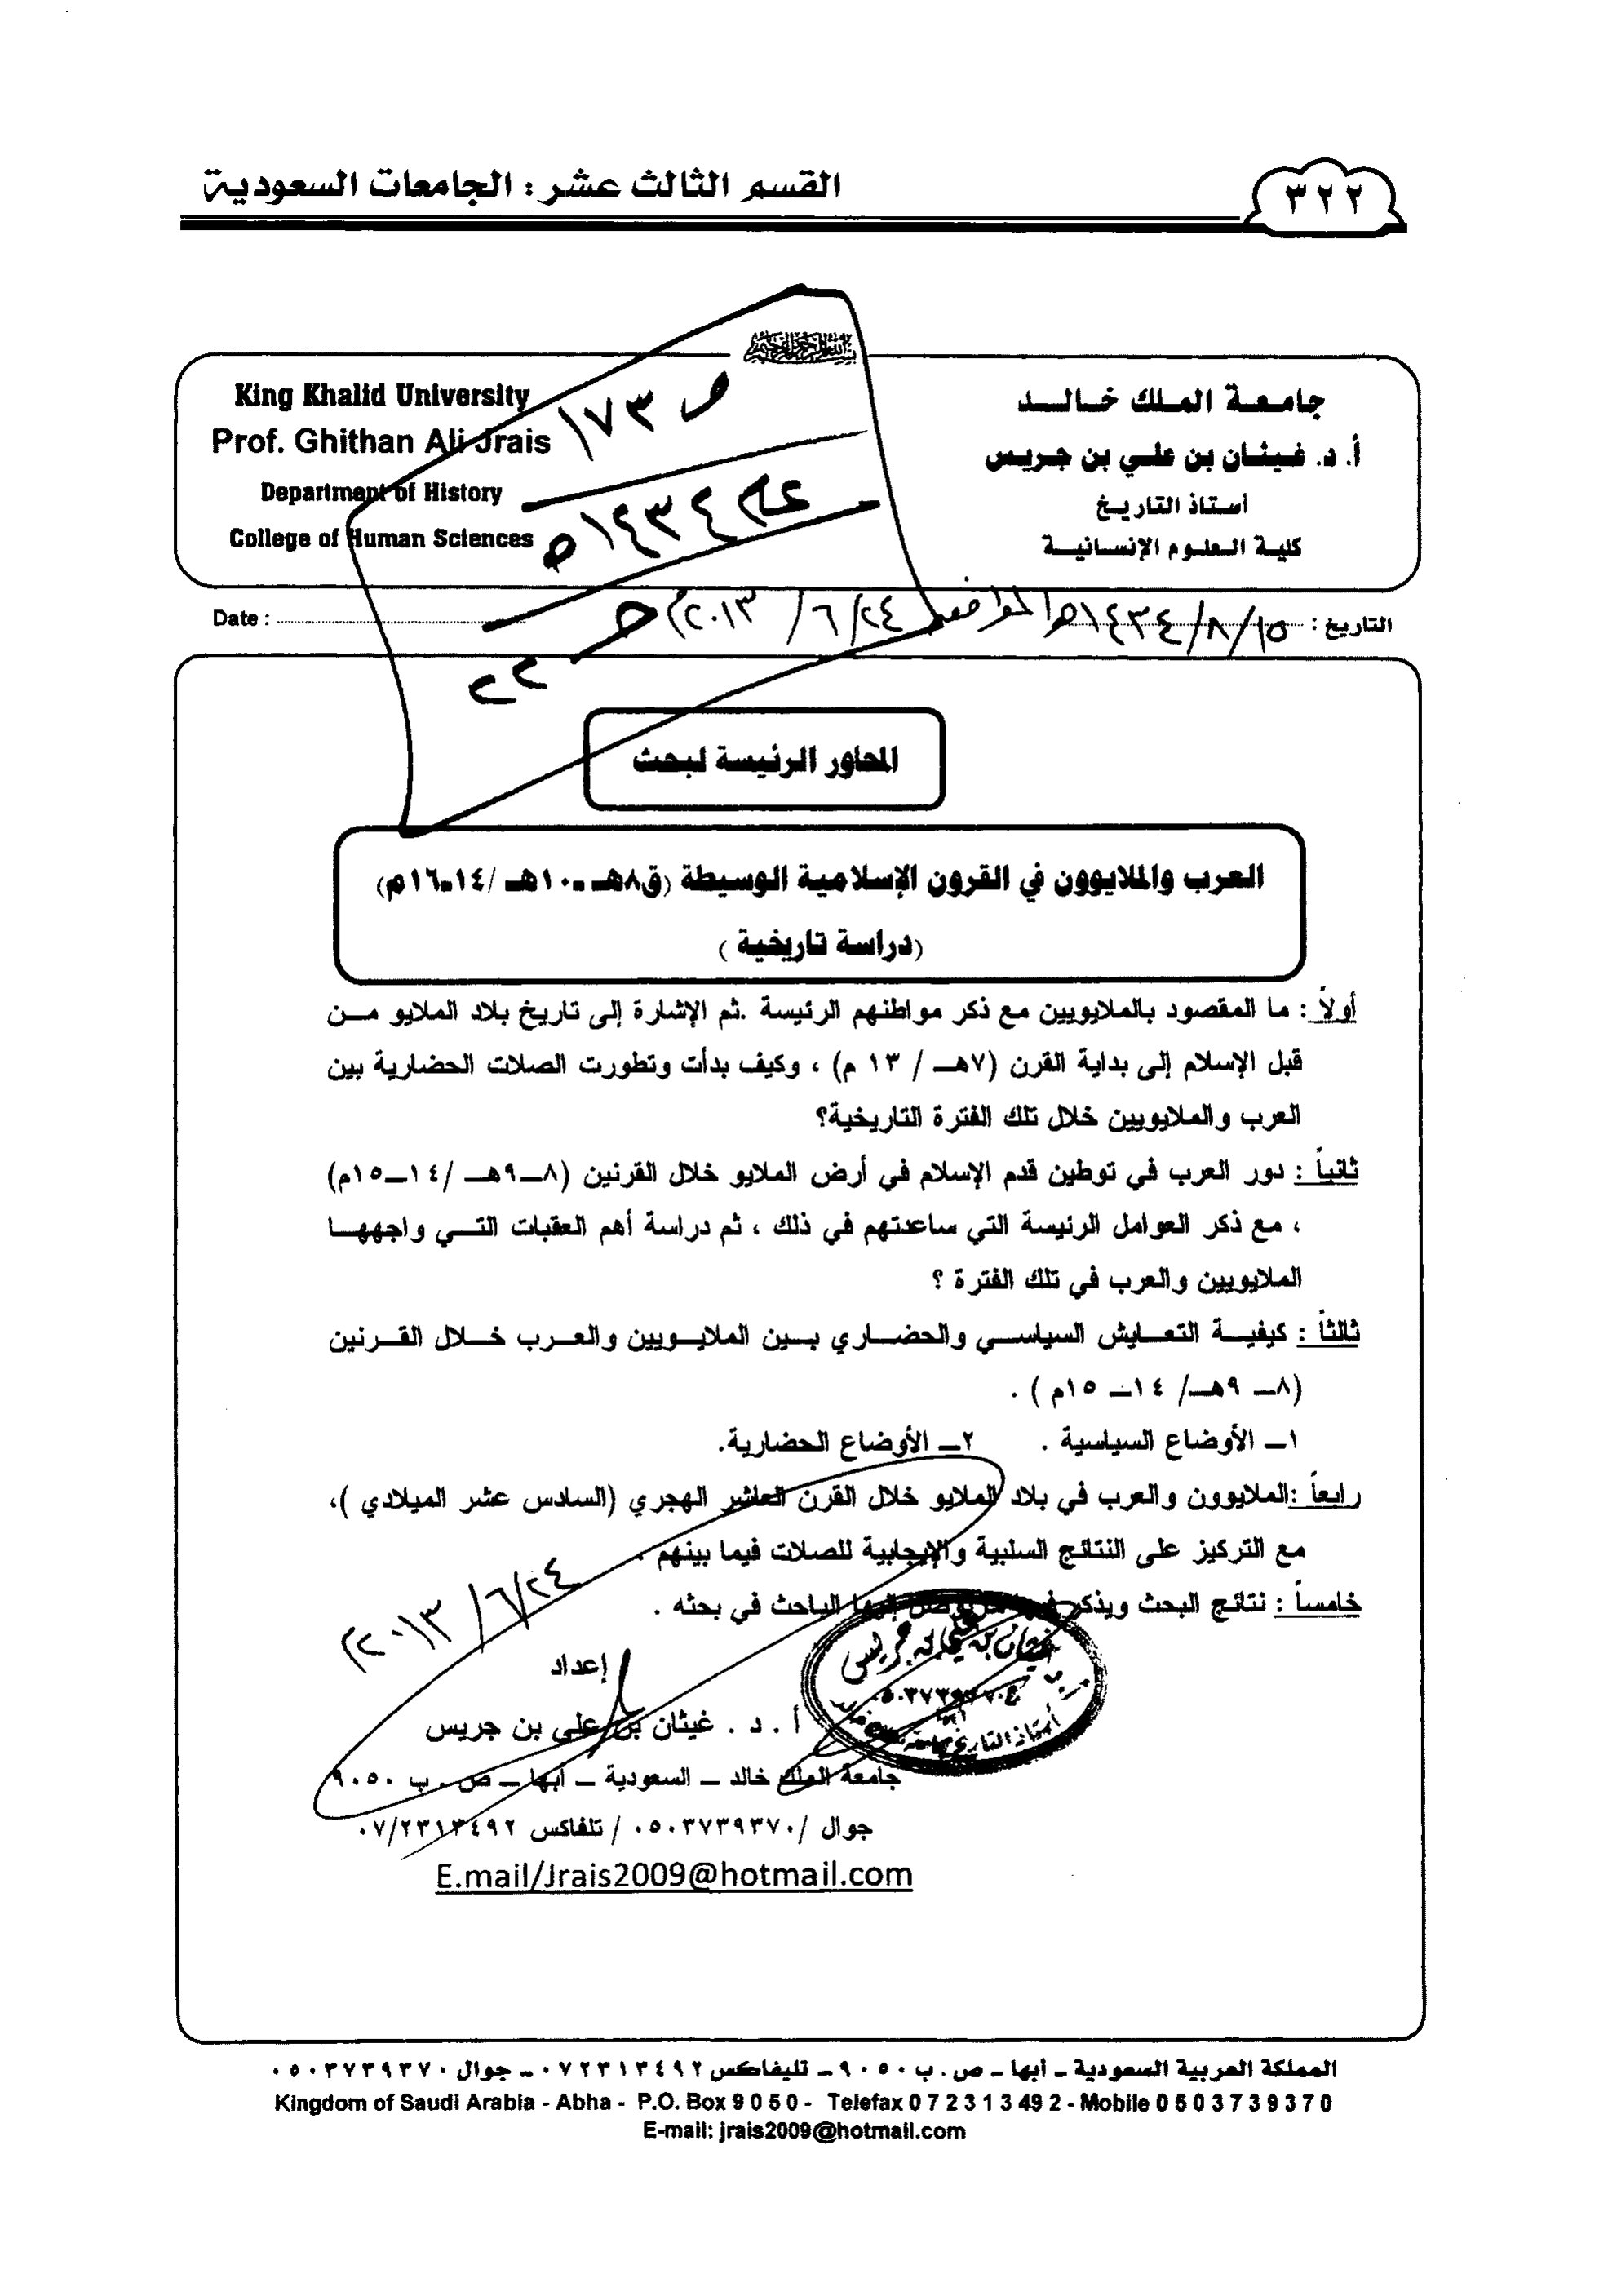 القسم الثالث عشر : الجامعات السعودية
٣٢٢
بسم الله الرحمن الرحيم
جامعة الملك خالد
أ. د. غيثان بن علي بن جريس
أستاذ التاريخ
كلية العلوم الإنسانية
King Khalid University
Prof. Ghithan Ali Jrais
Department of History
College of Human Sciences
ص ١٧٣
عام ١٤٣٤هـ
التاريخ : ١٥/٨/١٤٣٤هـ الموافق ٢٤/٦/٢٠١٣م
Date :
المحاور الرئيسة لبحث
العرب والملايوون في القرون الإسلامية الوسيطة (ق٨هـ -١٠هـ /١٤-١٦م)
(دراسة تاريخية )
أولاً : ما المقصود بالملايويين مع ذكر مواطنهم الرئيسة .ثم الإشارة إلى تاريخ بلاد الملايو من
قبل الإسلام إلى بداية القرن (٧هـ / ١٣ م) ، وكيف بدأت وتطورت الصلات الحضارية بين
العرب والملايويين خلال تلك الفترة التاريخية؟
ثانياً : دور العرب في توطين قدم الإسلام في أرض الملايو خلال القرنين (٨–٩هـ /١٤–١٥م)
، مع ذكر العوامل الرئيسة التي ساعدتهم في ذلك ، ثم دراسة أهم العقبات التي واجهها
الملايويين والعرب في تلك الفترة ؟
ثالثاً : كيفية التعايش السياسي والحضاري بين الملايويين والعرب خلال القرنين
(٨– ٩هـ/ ١٤– ١٥م ) .
١– الأوضاع السياسية . ٢– الأوضاع الحضارية.
رابعاً :الملايوون والعرب في بلاد الملايو خلال القرن العاشر الهجري (السادس عشر الميلادي )،
مع التركيز على النتائج السلبية والإيجابية للصلات فيما بينهم .
خامساً : نتائج البحث ويذكر إليها الباحث في بحثه .
٢٤/٦/٢٠١٣م
غيثان بن علي بن جريس
أستاذ التاريخ
إعداد
أ . د . غيثان بن علي بن جريس
جامعة الملك خالد – السعودية – أبها – ص . ب ٩٠٥٠
جوال /٠٥٠٣٧٣٩٣٧٠ / تلفاكس ٠٧/٢٣١٣٤٩٢
E.mail/Jrais2009@hotmail.com
المملكة العربية السعودية – أبها – ص . ب ٩٠٥٠ – تليفاكس ٠٧٢٣١٣٤٩٢ – جوال ٠٥٠٣٧٣٩٣٧٠
Kingdom of Saudi Arabia - Abha - P.O. Box 9 0 5 0 - Telefax 0 7 2 3 1 3 49 2 - Mobile 0 5 0 3 7 3 9 3 7 0
E-mail: jrais2009@hotmail.com